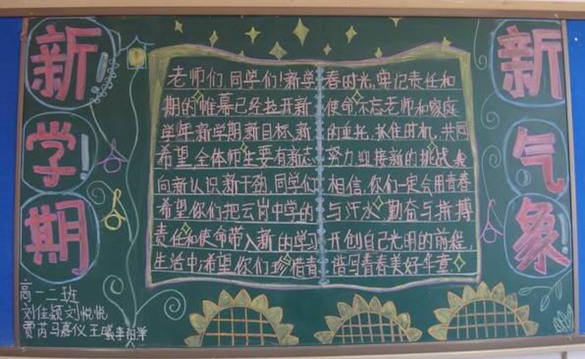 新学期
老师们同学们!新学
期的帷幕已经拉开新
学年新学期新目标、新
希望,全体师生要有新志
向新认识新干劲,同学们
希望你们把云岗中学的
责任和使命带入新的学习
生活中,希望你们珍惜青
春时光,牢记责任和
使命不忘老师和家庭
的重托,抓住时机,共同
努力迎接新的挑战,我
相信,你们一定会用青春
与汗水,勤奋与拼搏
开创自己光明的前程,
谱写青春美好华章.
新气象
高一二班
刘佳颖刘悦悦
贾芮马嘉仪王